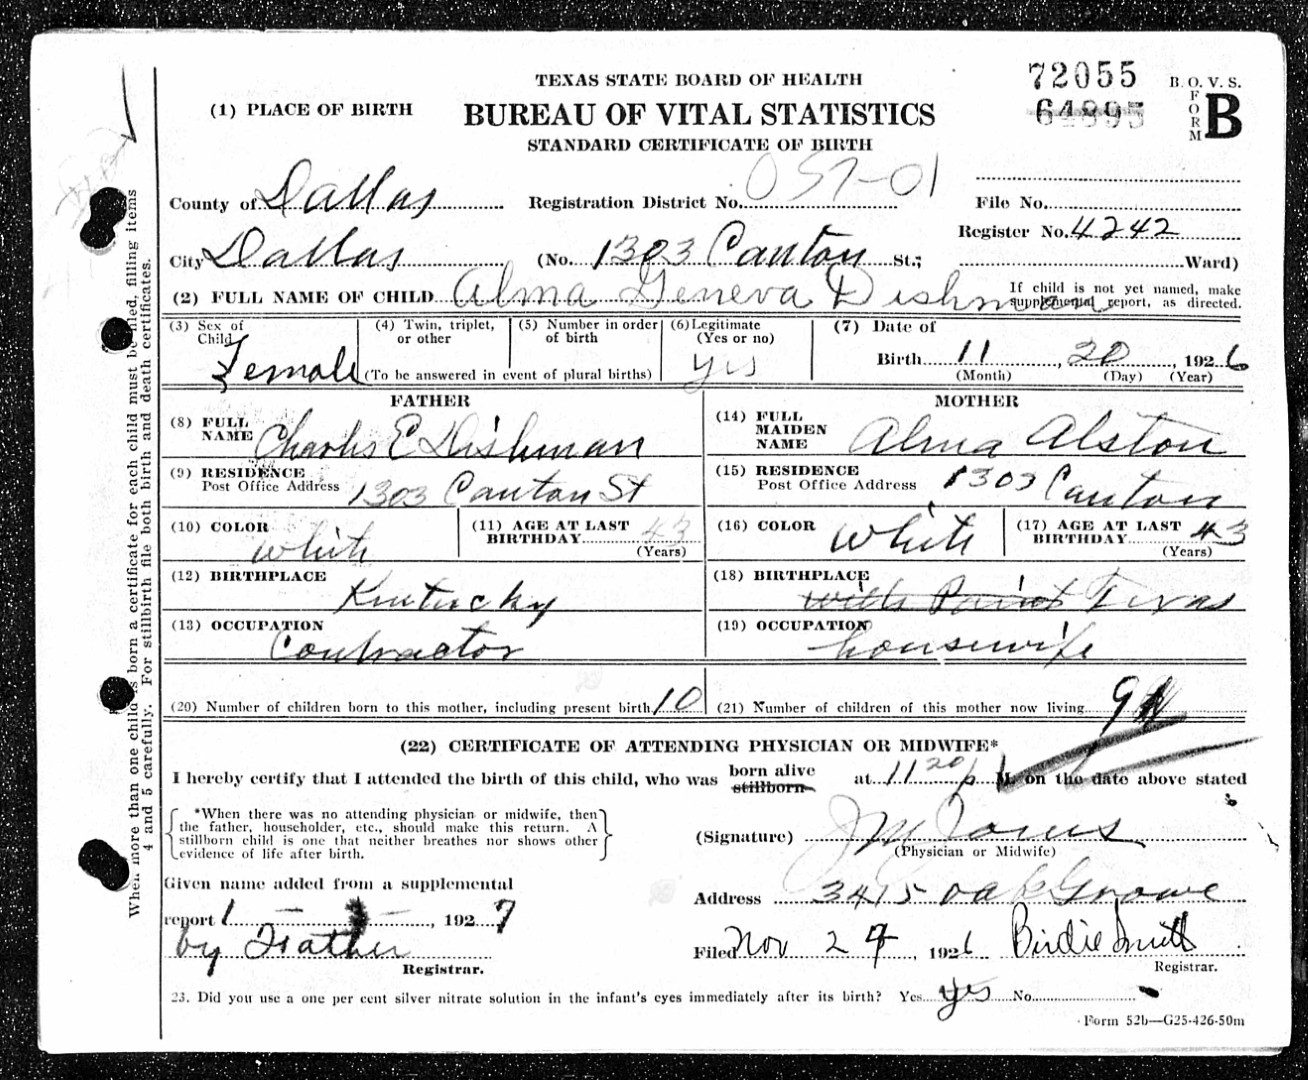 72055
TEXAS STATE BOARD OF HEALTH
B. O. V. S.
64895
FORM B
(1) PLACE OF BIRTH
BUREAU OF VITAL STATISTICS
STANDARD CERTIFICATE OF BIRTH
County of Dallas Registration District No. 057-01 File No.
Register No. 4242
City Dallas (No. 1303 Canton St.; Ward)
(2) FULL NAME OF CHILD Alma Geneva Dishman
If child is not yet named, make
supplemental report, as directed.
(3) Sex of Child Female
(4) Twin, triplet, or other
(5) Number in order of birth
(To be answered in event of plural births)
(6) Legitimate (Yes or no) yes
(7) Date of
Birth 11, 20, 1926
(Month) (Day) (Year)
FATHER
(8) FULL NAME Charles E Dishman
(9) RESIDENCE
Post Office Address 1303 Canton St
(10) COLOR white
(11) AGE AT LAST BIRTHDAY 43
(Years)
(12) BIRTHPLACE Kentucky
(13) OCCUPATION Contractor
MOTHER
(14) FULL MAIDEN NAME Alma Alston
(15) RESIDENCE
Post Office Address 1303 Canton
(16) COLOR White
(17) AGE AT LAST BIRTHDAY 43
(Years)
(18) BIRTHPLACE Wills Point Texas
(19) OCCUPATION housewife
(20) Number of children born to this mother, including present birth 10
(21) Number of children of this mother now living 9
(22) CERTIFICATE OF ATTENDING PHYSICIAN OR MIDWIFE*
I hereby certify that I attended the birth of this child, who was born alive stillborn at 11 20 p M. on the date above stated
*When there was no attending physician or midwife, then
the father, householder, etc., should make this return. A
stillborn child is one that neither breathes nor shows other
evidence of life after birth.
(Signature) J M
(Physician or Midwife)
Given name added from a supplemental
report 1 – 3 –, 1927
by Father
Registrar.
Address 3415 Oak Grove
Filed Nov 24, 1926 Birdie Smith
Registrar.
23. Did you use a one per cent silver nitrate solution in the infant's eyes immediately after its birth? Yes yes No
Form 52b—G25-426-50m
When more than one child is born a certificate for each child must be filed, filling items
4 and 5 carefully. For stillbirth file both birth and death certificates.